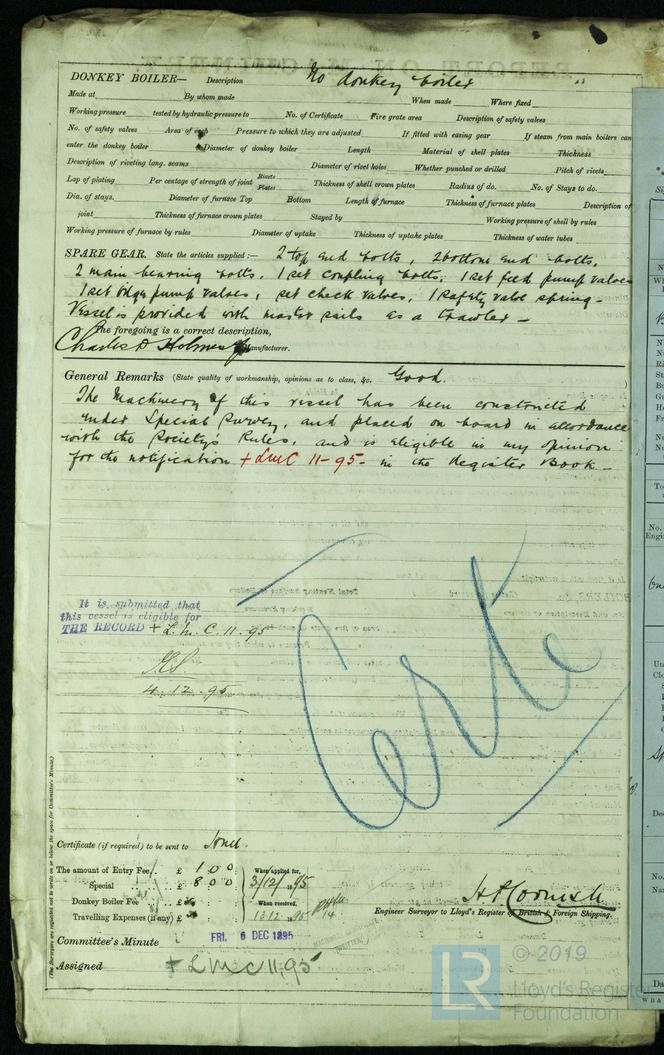 DONKEY BOILER— Description No donkey boiler "
Made at By whom made When made Where fixed
Working pressure tested by hydraulic pressure to No. of Certificate Fire grate area Description of safety valves
No. of safety valves Area of each Pressure to which they are adjusted If fitted with easing gear If steam from main boilers can
enter the donkey boiler Diameter of donkey boiler Length Material of shell plates Thickness
Description of riveting long. seams Diameter of rivet holes Whether punched or drilled Pitch of rivets
Lap of plating Per centage of strength of joint Rivets Plates Thickness of shell crown plates Radius of do. No. of Stays to do.
Dia. of stays. Diameter of furnace Top Bottom Length of furnace Thickness of furnace plates Description of
joint Thickness of furnace crown plates Stayed by Working pressure of shell by rules
Working pressure of furnace by rules Diameter of uptake Thickness of uptake plates Thickness of water tubes
SPARE GEAR. State the articles supplied:— 2 top end bolts, 2 bottom end bolts,
2 main bearing bolts, 1 set coupling bolts, 1 set feed pump valves
1 set bilge pump valves, set check valves, 1 safety valve spring—
Vessel is provided with master sails as a trawler—
The foregoing is a correct description,
Charles D Holmes Manufacturer.
General Remarks (State quality of workmanship, opinions as to class, &c. Good.
The Machinery of this vessel has been constructed
under Special Survey, and placed on board in accordance
with the Society's Rules, and is eligible in my opinion
for the notification + LMC 11-95- in the Register Book—
It is submitted that
this vessel is eligible for
THE RECORD + L.M.C. 11.95
4.12.95
(The Surveyors are requested not to write on or below the space for Committee's Minute.)
Certificate (if required) to be sent to
The amount of Entry Fee £ 1 0 0 When applied for,
Special £ 8 0 0 3/12/1895
Donkey Boiler Fee £ When received,
Travelling Expenses (if any) £ 13.12.1895
Engineer Surveyor to Lloyd's Register of British & Foreign Shipping.
Committee's Minute FRI. 6 DEC 1895
Assigned + LMC 11,95
LR © 2019
Lloyd's Register
Foundation